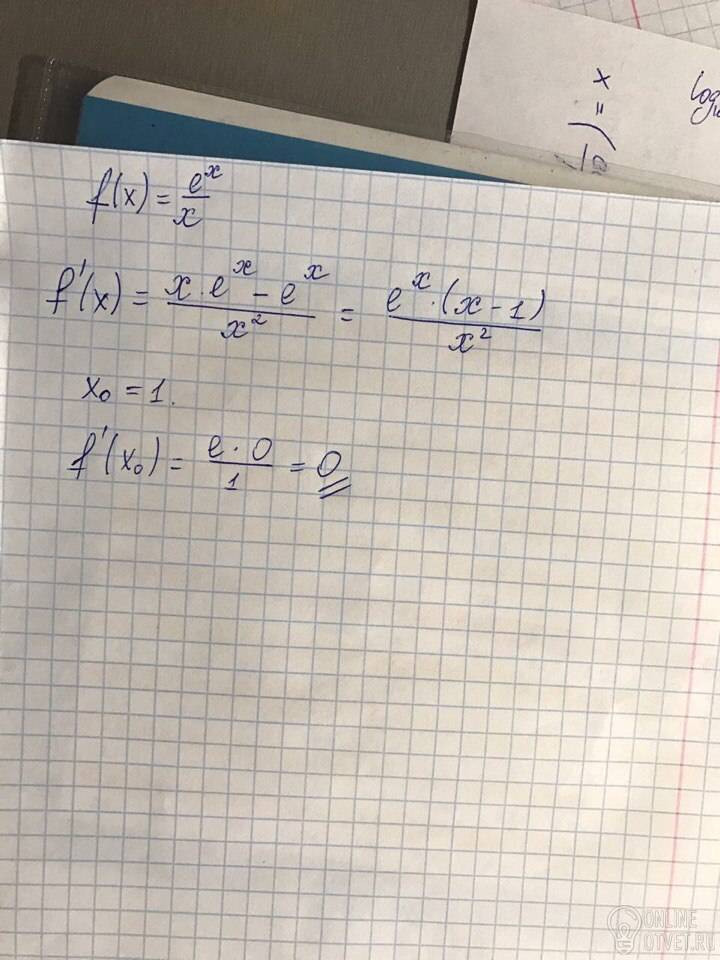 x =
log
f(x) = e^x/x
f'(x) = (x·e^x - e^x)/x^2 = (e^x·(x-1))/x^2
x₀ = 1.
f'(x₀) = (e·0)/1 = 0
ONLINE
OTVET.RU